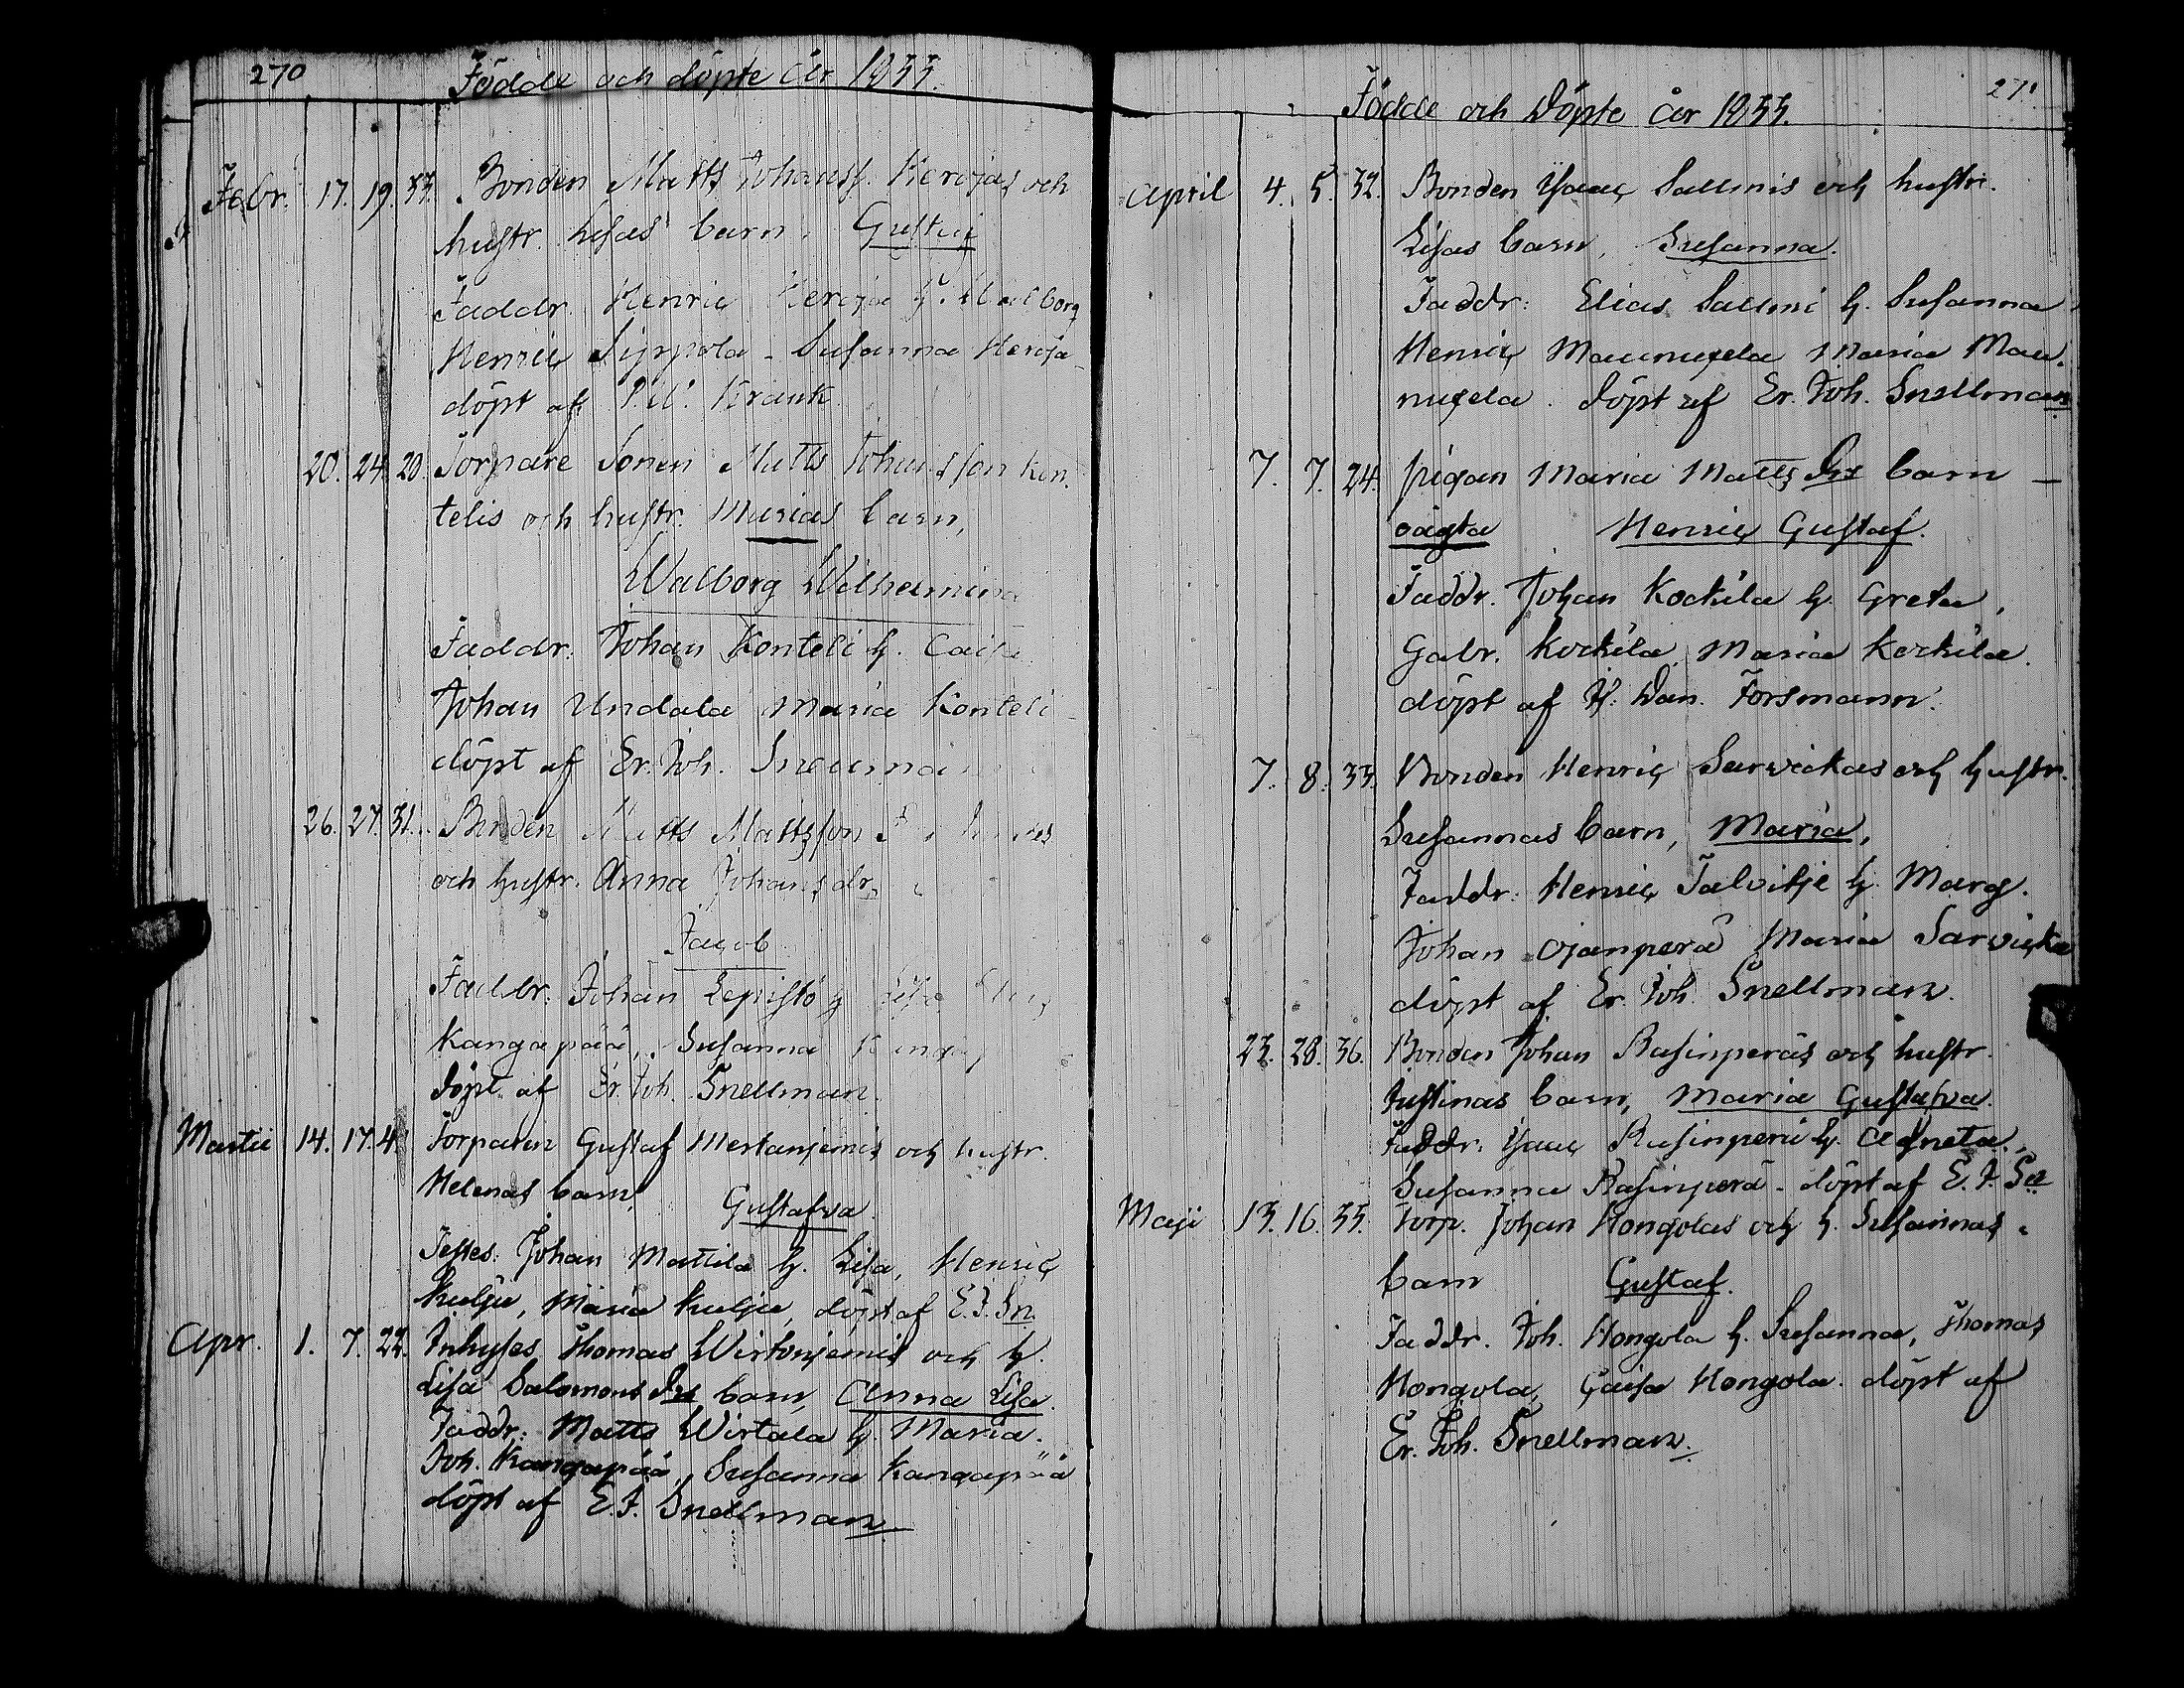 270
Födde och döpte år 1855.
Febr. 17. 19. 33. Bonden Matts Johanss. Heroja, och
hustr. Lisas barn, Gustaf
Faddr. Henric Heroja h. Walborg
Henric Sippola - Susanna Heroja -
döpt af Krank
20. 24. 20. Torpare Sonen Matts Johansson Kon-
telis och hustr. Marias barn,
Walborg Wilhelmina
Faddr. Johan Konteli h. Caisa
Johan Undala Maria Konteli -
döpt af Er. Joh. Snellman
26. 27. 31. Bonden Matts Mattsson
och hustr. Anna Johansdr,
Jacob
Faddr. Johan Lepistö h Lisa
Kangapää, Susanna
döpt af Er. Joh. Snellman
Martii 14. 17. 4 Torparen Gustaf Mertaniemis och hustr.
Helenas barn, Gustafva.
Testes. Johan Mattila h. Lisa, Henric
Kulju, Maria Kulju, döpt af E. J. Sn.
Apr. 1. 7. 22. Inhyses Thomas Wirtoniemis och h.
Lisa Salomons Drs barn, Anna Lisa.
Faddr: Matts Wirtala h. Maria.
Joh. Kangapää, Susanna Kangapää
döpt af E. J. Snellman
271
Födde och Döpte år 1855.
April 4. 5. 32. Bonden Isaac Sallmis och hustr.
Lisas barn, Susanna.
Faddr: Elias Sallmi h. Susanna
Henric Maunuxela Maria Mau-
nuxela. döpt af Er. Joh. Snellman
7. 7. 24. pigan Maria Matts Drs barn —
oägta Henric Gustaf.
Faddr. Johan Kockila h. Greta,
Gabr. Kockila, Maria Kockila.
döpt af Is. Dan. Forsmann.
7. 8. 33. Bonden Henric Sarvickas och hustr.
Susannas barn, Maria,
Faddr: Henric Talvitje h. Marg.
Johan Ojanperä Maria Sarvicka
döpt af Er. Joh. Snellman.
23. 28. 36. Bonden Johan Rasinperäs och hustr.
Justinas barn, Maria Gustafva.
Faddr: Isaac Rasinperä h. Agneta,
Susanna Rasinperä - döpt af E. J. Sn
Maji 13. 16. 35. Torp. Johan Hongolas och h. Susannas
barn Gustaf.
Faddr. Joh. Hongola h. Susanna, Thomas
Hongola, Caisa Hongola. döpt af
Er. Joh. Snellman.